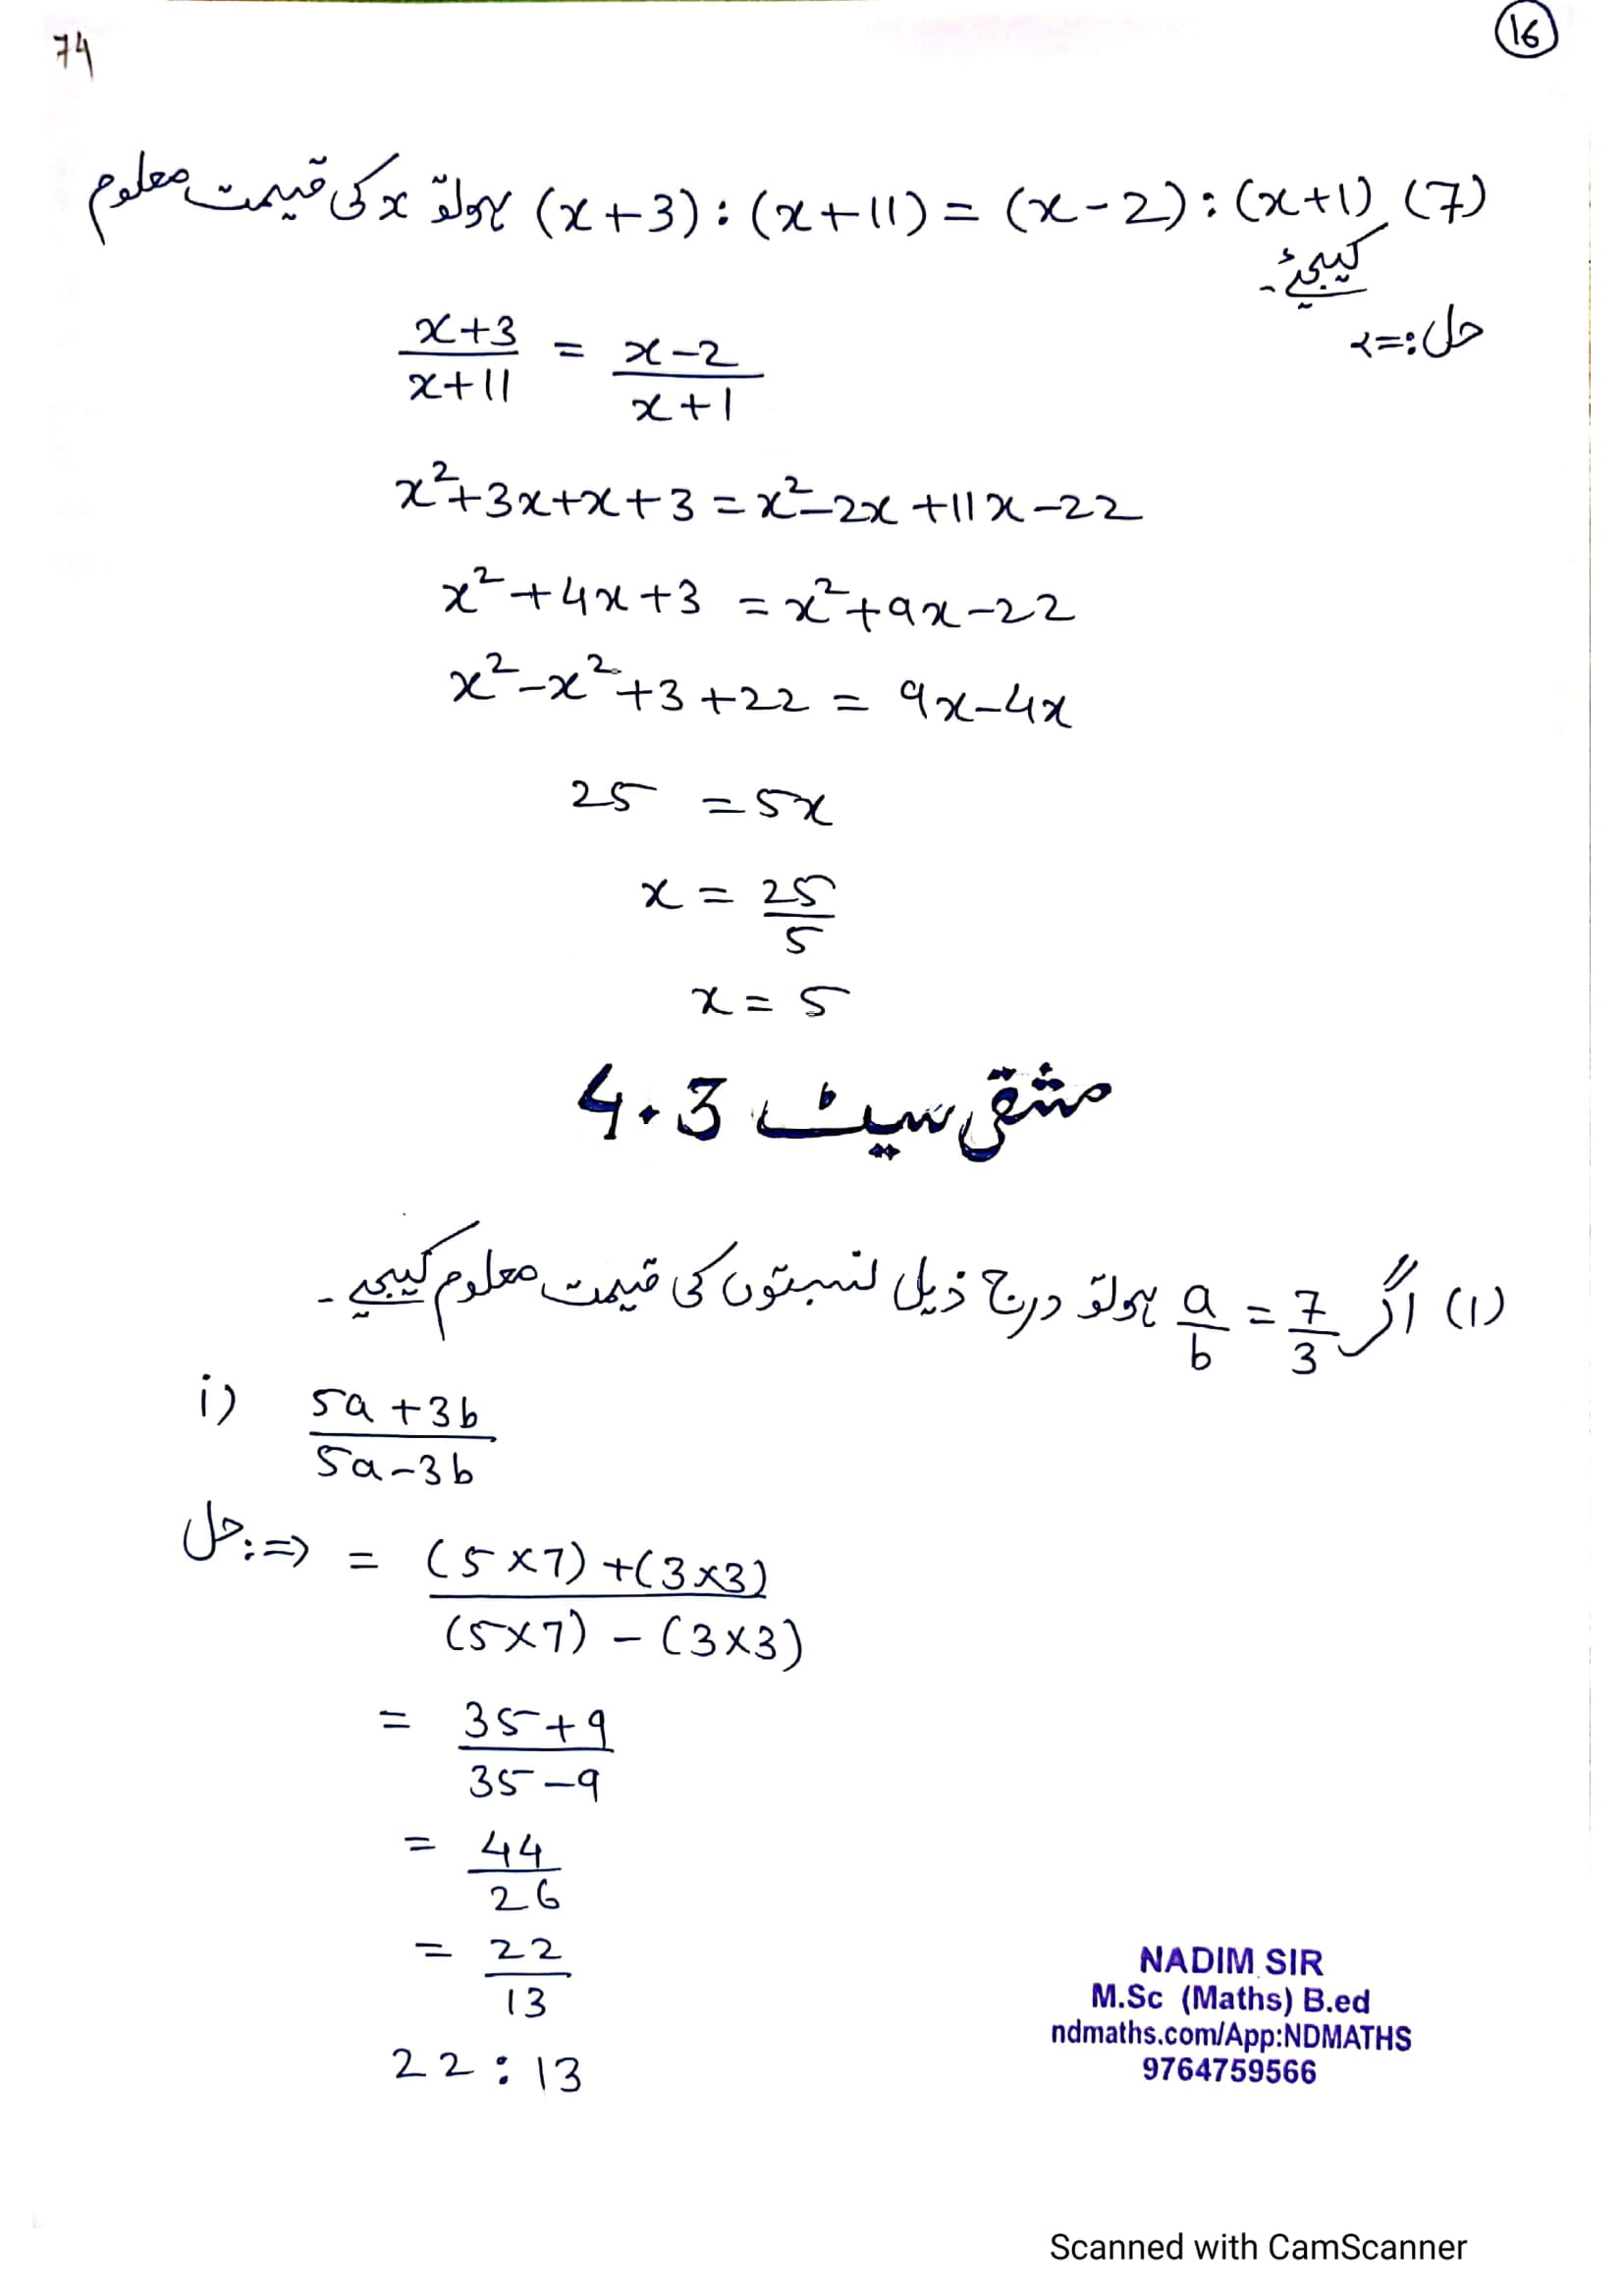 74
16
(7) (x+3):(x+11) = (x-2):(x+1) ہولتو x کی قیمت معلوم
کیجیے۔
حل:=>
x+3/x+11 = x-2/x+1
x²+3x+x+3 = x²-2x+11x-22
x²+4x+3 = x²+9x-22
x²-x²+3+22 = 9x-4x
25 = 5x
x = 25/5
x = 5
مشقی سیٹ 4.3
(1) اگر a/b = 7/3 ہولتو درج ذیل نسبتوں کی قیمت معلوم کیجیے۔
i) 5a+3b/5a-3b
حل:=> = (5×7)+(3×3)/(5×7)-(3×3)
= 35+9/35-9
= 44/26
= 22/13
22:13
NADIM SIR
M.Sc (Maths) B.ed
ndmaths.com/App:NDMATHS
9764759566
Scanned with CamScanner